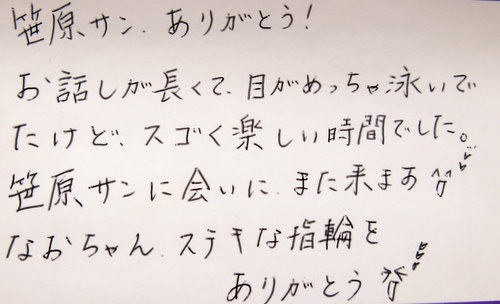 笹原サン、ありがとう!
お話しが長くて、目がめっちゃ泳いで
たけど、スゴく楽しい時間でした。
笹原サンに会いに、また来まあ
なおちゃん、ステキな指輪を
ありがとう